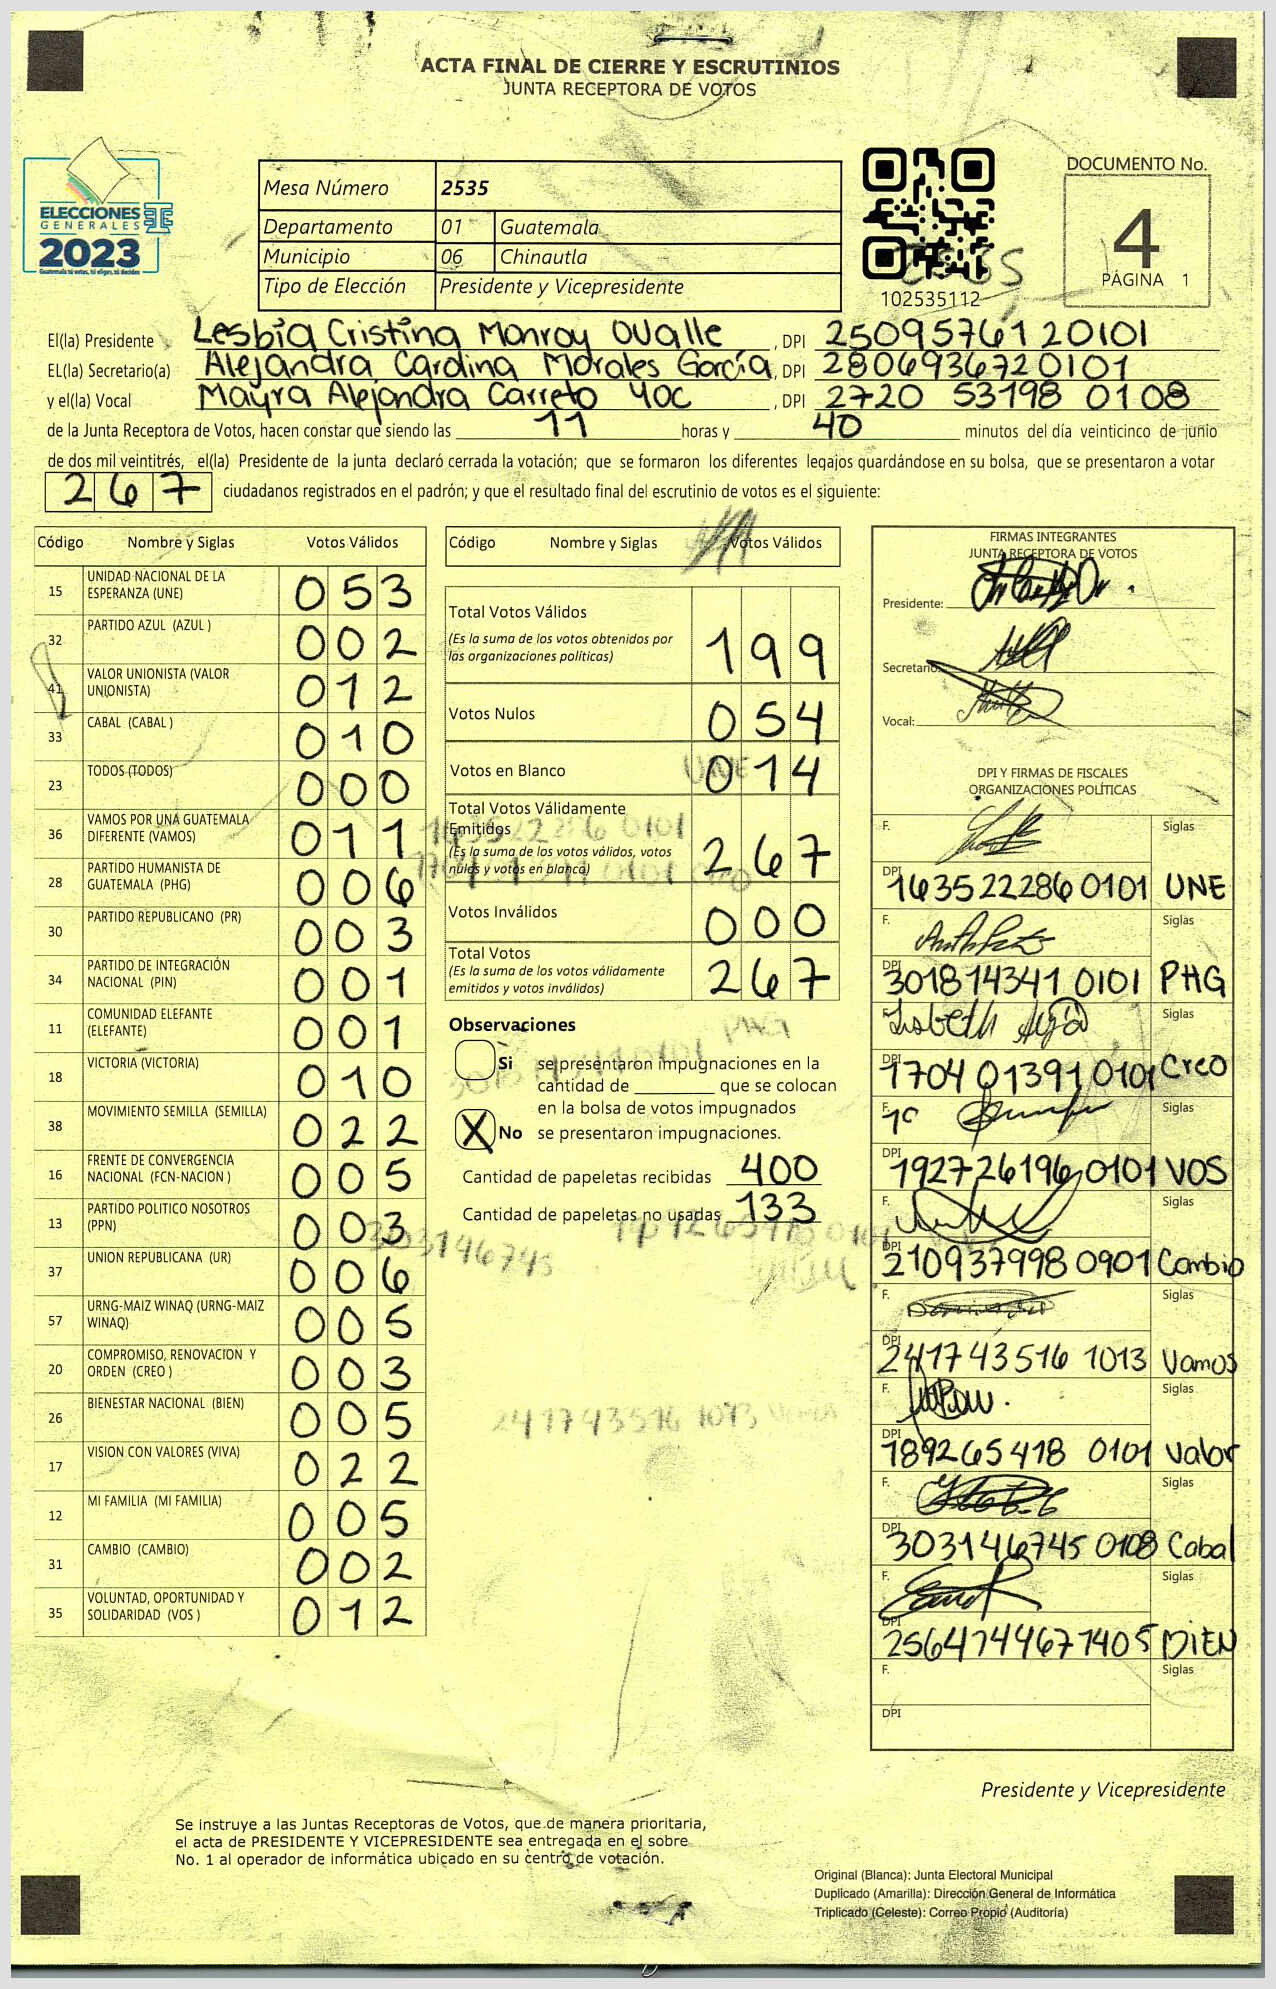 ACTA FINAL DE CIERRE Y ESCRUTINIOS
JUNTA RECEPTORA DE VOTOS
ELECCIONES
GENERALES
2023
Guatemala tú votas, tú eliges, tú decides
Mesa Número 2535
Departamento 01 Guatemala
Municipio 06 Chinautla
Tipo de Elección Presidente y Vicepresidente
102535112
DOCUMENTO No.
4
PÁGINA 1
El(la) Presidente Lesbia Cristina Monroy Ovalle , DPI 2509576120101
EL(la) Secretario(a) Alejandra Carolina Morales García , DPI 2806936720101
y el(la) Vocal Mayra Alejandra Carreto Yoc , DPI 2720 53198 0108
de la Junta Receptora de Votos, hacen constar que siendo las 11 horas y 40 minutos del día veinticinco de junio
de dos mil veintitrés, el(la) Presidente de la junta declaró cerrada la votación; que se formaron los diferentes legajos guardándose en su bolsa, que se presentaron a votar
267 ciudadanos registrados en el padrón; y que el resultado final del escrutinio de votos es el siguiente:
Código Nombre y Siglas Votos Válidos
15 UNIDAD NACIONAL DE LA ESPERANZA (UNE) 053
32 PARTIDO AZUL (AZUL ) 002
41 VALOR UNIONISTA (VALOR UNIONISTA) 012
33 CABAL (CABAL ) 010
23 TODOS (TODOS) 000
36 VAMOS POR UNA GUATEMALA DIFERENTE (VAMOS) 011
28 PARTIDO HUMANISTA DE GUATEMALA (PHG) 006
30 PARTIDO REPUBLICANO (PR) 003
34 PARTIDO DE INTEGRACIÓN NACIONAL (PIN) 001
11 COMUNIDAD ELEFANTE (ELEFANTE) 001
18 VICTORIA (VICTORIA) 010
38 MOVIMIENTO SEMILLA (SEMILLA) 022
16 FRENTE DE CONVERGENCIA NACIONAL (FCN-NACION ) 005
13 PARTIDO POLITICO NOSOTROS (PPN) 003
37 UNION REPUBLICANA (UR) 006
57 URNG-MAIZ WINAQ (URNG-MAIZ WINAQ) 005
20 COMPROMISO, RENOVACION Y ORDEN (CREO ) 003
26 BIENESTAR NACIONAL (BIEN) 005
17 VISION CON VALORES (VIVA) 022
12 MI FAMILIA (MI FAMILIA) 005
31 CAMBIO (CAMBIO) 002
35 VOLUNTAD, OPORTUNIDAD Y SOLIDARIDAD (VOS ) 012
Código Nombre y Siglas Votos Válidos
Total Votos Válidos
(Es la suma de los votos obtenidos por
las organizaciones políticas) 199
Votos Nulos 054
Votos en Blanco 014
Total Votos Válidamente
Emitidos
(Es la suma de los votos válidos, votos
nulos y votos en blanco) 267
Votos Inválidos 000
Total Votos
(Es la suma de los votos válidamente
emitidos y votos inválidos) 267
Observaciones
Si se presentaron impugnaciones en la
cantidad de ________ que se colocan
en la bolsa de votos impugnados
X No se presentaron impugnaciones.
Cantidad de papeletas recibidas 400
Cantidad de papeletas no usadas 133
FIRMAS INTEGRANTES
JUNTA RECEPTORA DE VOTOS
Presidente:
Secretario:
Vocal:
DPI Y FIRMAS DE FISCALES
ORGANIZACIONES POLÍTICAS
F. Siglas
DPI 163522286 0101 UNE
F. Siglas
DPI 301814341 0101 PHG
Lisbeth Siglas
DPI 1704 01391 0101 Creo
F. Siglas
DPI 192726196 0101 VOS
F. Siglas
DPI 210937998 0901 Cambio
F. Siglas
DPI 241743516 1013 Vamos
F. Siglas
DPI 189265418 0101 Valor
F. Siglas
DPI 303146745 0108 Cabal
F. Siglas
DPI 256474467 1405 BIEN
F. Siglas
DPI
Presidente y Vicepresidente
Se instruye a las Juntas Receptoras de Votos, que de manera prioritaria,
el acta de PRESIDENTE Y VICEPRESIDENTE sea entregada en el sobre
No. 1 al operador de informática ubicado en su centro de votación.
Original (Blanca): Junta Electoral Municipal
Duplicado (Amarilla): Dirección General de Informática
Triplicado (Celeste): Correo Propio (Auditoría)